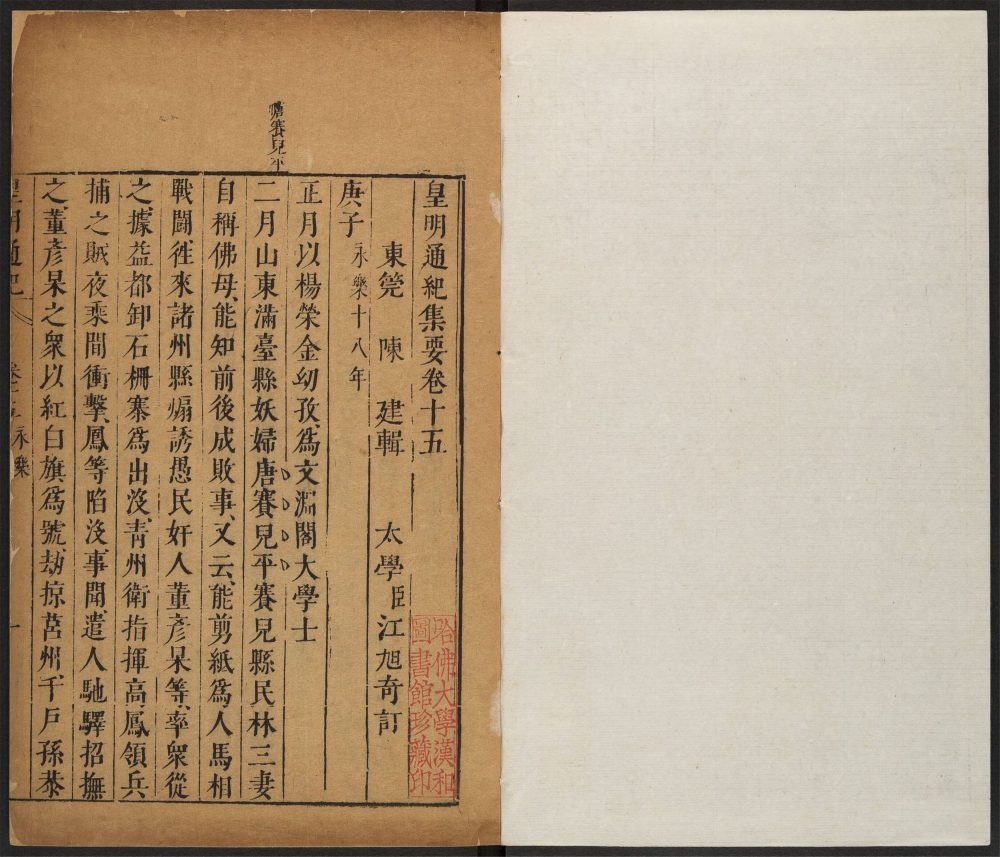 皇明通紀集要卷十五
東筦 陳 建輯 太學臣江旭奇訂
庚子永樂十八年
正月以楊榮金幼孜爲文淵閣大學士
二月山東滿臺縣妖婦唐賽兒平賽兒縣民林三妻
自稱佛母、能知前後成敗事、又云、能剪紙爲人馬相
戰鬬徃來諸州縣煽誘愚民奸人董彥杲等、率衆從
之、據益都卸石柵寨爲出沒、青州衛指揮高鳳領兵
捕之賊夜乘間衝擊、鳳等陷沒事聞、遣人馳驛招撫
之、董彥杲之衆以紅白旗爲號、劫掠莒州千戶孫恭
皇明通紀 卷十五 永樂 一
唐賽兒平
哈佛大學漢和
圖書館珍藏印